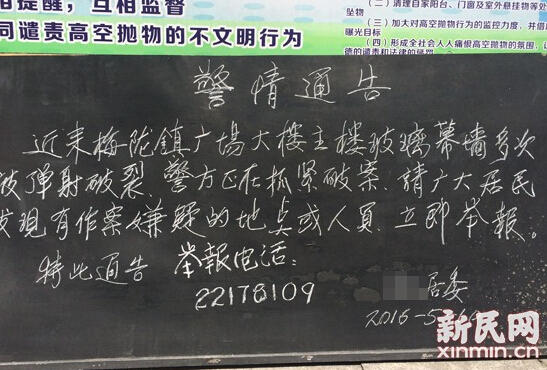 相提醒，互相监督
同谴责高空抛物的不文明行为
（二）清理自家阳台、门窗及室外悬挂物等处
坠物
（三）加大对高空抛物行为的监控力度，并借
曝光目标
（四）形成全社会人人痛恨高空抛物的氛围，
德的谴责和法律的惩罚
警情通告
近来梅陇镇广場大楼主楼玻璃幕墙多次
被弹射破裂、警方正在抓紧破案、請广大居民
发现有作案嫌疑的地点或人員、立即举報。
特此通告 举報电话：
22178109
居委
2016-5
新民网
xinmin.cn